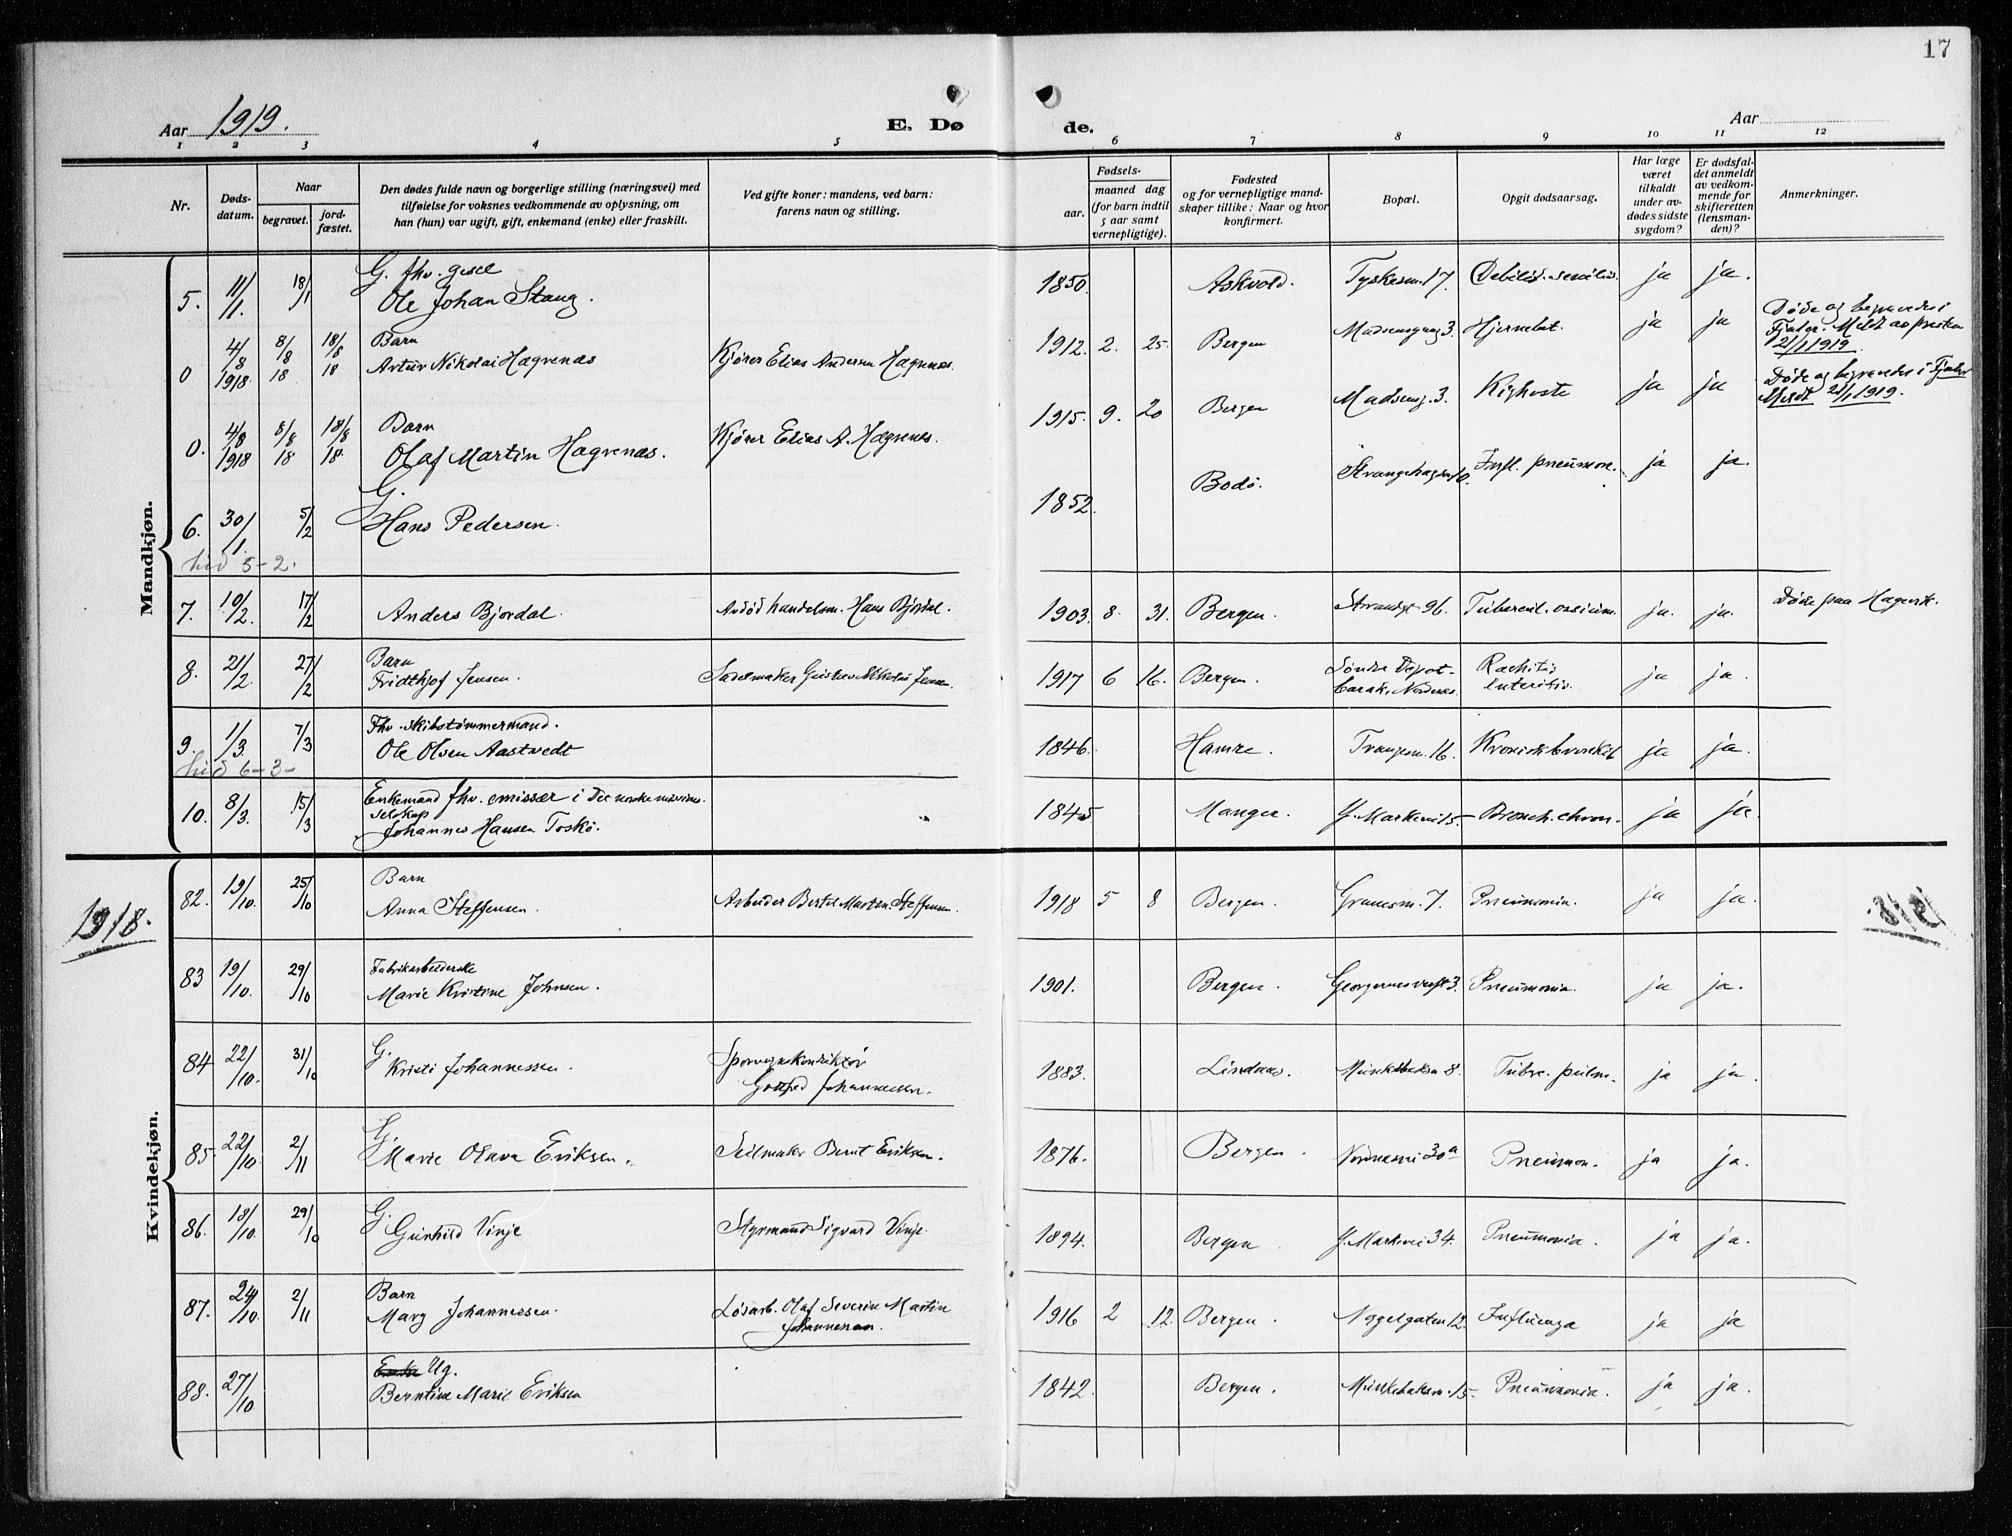 17
Aar 1919.
E. Dø de.
Aar
1 2 3 4 5 6 7 8 9 10 11 12
Nr.
Dødsdatum.
Naar
begravet.
jordfæstet.
Den dødes fulde navn og borgerlige stilling (næringsvei) med
tilføielse for voksnes vedkommende av oplysning, om
han (hun) var ugift, gift, enkemand (enke) eller fraskilt.
Ved gifte koner: mandens, ved barn:
farens navn og stilling.
Fødsels-
aar.
maaned dag
(for barn indtil
5 aar samt
vernepligtige).
Fødested
og for vernepligtige mand-
skaper tillike: Naar og hvor
konfirmert.
Bopæl.
Opgit dødsaarsag.
Har læge
været
tilkaldt
under av-
dødes sidste
sygdom?
Er dødsfal-
det anmeldt
av vedkom-
mende for
skifteretten
(lensman-
den)?
Anmerkninger.
Mandkjøn.
G. fhv. gesel
5. 11/1. 18/1 Ole Johan Stang. 1850. Askvold. Tyskesm. 17. Debilit. senilis. ja ja.
Barn
0 4/8 1918. 8/8 18 18/8 18 Artur Nikolai Hagrenæs Kjører Elias Andersen Hagrenæs. 1912. 2. 25. Bergen Madsensgang 3. Hjernebet. ja ja Døde og begravedes i
Fjaler. Meldt av presten
21/1 1919.
Barn
0. 4/8 1918 8/8 18 18/8 18 Olaf Martin Hagrenæs. Kjører Elias A. Hagrenæs. 1915. 9. 20 Bergen Madseng. 3. Kighoste ja ja Døde og begravedes i Fjaler
Meldt 21/1 1919.
G.
6. 30/1. 5/2 Hans Pedersen. 1852. Bodø. Strangehagen 10. Infl. pneumon. ja ja.
hid 5-2.
7. 10/2. 17/2 Anders Bjordal. Avdød handelsm. Hans Bjordal. 1903. 8. 31. Bergen. Strandgt 96. Tubercul. ossium. ja. ja. Døde paa Hagevik.
Barn
8. 21/2. 27/2 Fridthjof Jensen. Sadelmaker Gustav Nikolai Jensen. 1917 6 16. Bergen. Søndre Depot-
barak, Nordnes. Rachitis
Enteritis. ja ja.
Fhv. skibstømmermand.
9. 1/3. 7/3 Ole Olsen Aastvedt 1846. Hamre. Trangesm. 16. Kronisk bronkit ja ja.
hid 6-3-
Enkemand fhv. emissær i Det norske misions-
selskap
10. 8/3. 15/3 Johannes Hansen Toskø. 1845 Manger. Y. Markevei 15- Bronch. chron. ja ja.
1918.
Kvindekjøn.
Barn
82. 19/10. 25/10 Anna Steffensen. Arbeider Bertel Martin Steffensen. 1918 5 8 Bergen. Grunesm. 7. Pneumonia. ja ja.
Fabrikarbeiderske
83 19/10. 29/10 Marie Kristine Johnsen. 1901. Bergen. Georgernes verft 3. Pneumonia. ja ja.
G.
84 22/10. 31/10 Kristi Johannessen. Sporveiskonduktør
Gotfred Johannessen. 1883. Lindaas. Munkebæksm 8. Tubrc. pulm. ja ja.
G.
85. 22/10. 2/11 Marie Olava Eriksen. Seilmaker Bernt Eriksen. 1876. Bergen. Nordnesvei 30a Pneumon. ja ja.
G.
86. 18/10. 29/10 Gunhild Vinje Styrmand Sigvard Vinje 1894. Bergen Y. Markevei 34. Pneumonia. ja ja.
Barn
87. 24/10. 2/11 Mary Johannessen. Løsarb. Olaf Severin Martin
Johannessen. 1916 2 12. Bergen. Nøgelgaten 12. Influenza ja ja
Enke Ug.
88. 27/10 Berntine Marie Eriksen 1842. Bergen. Munkebæksm. 15- Pneumonia. ja ja.